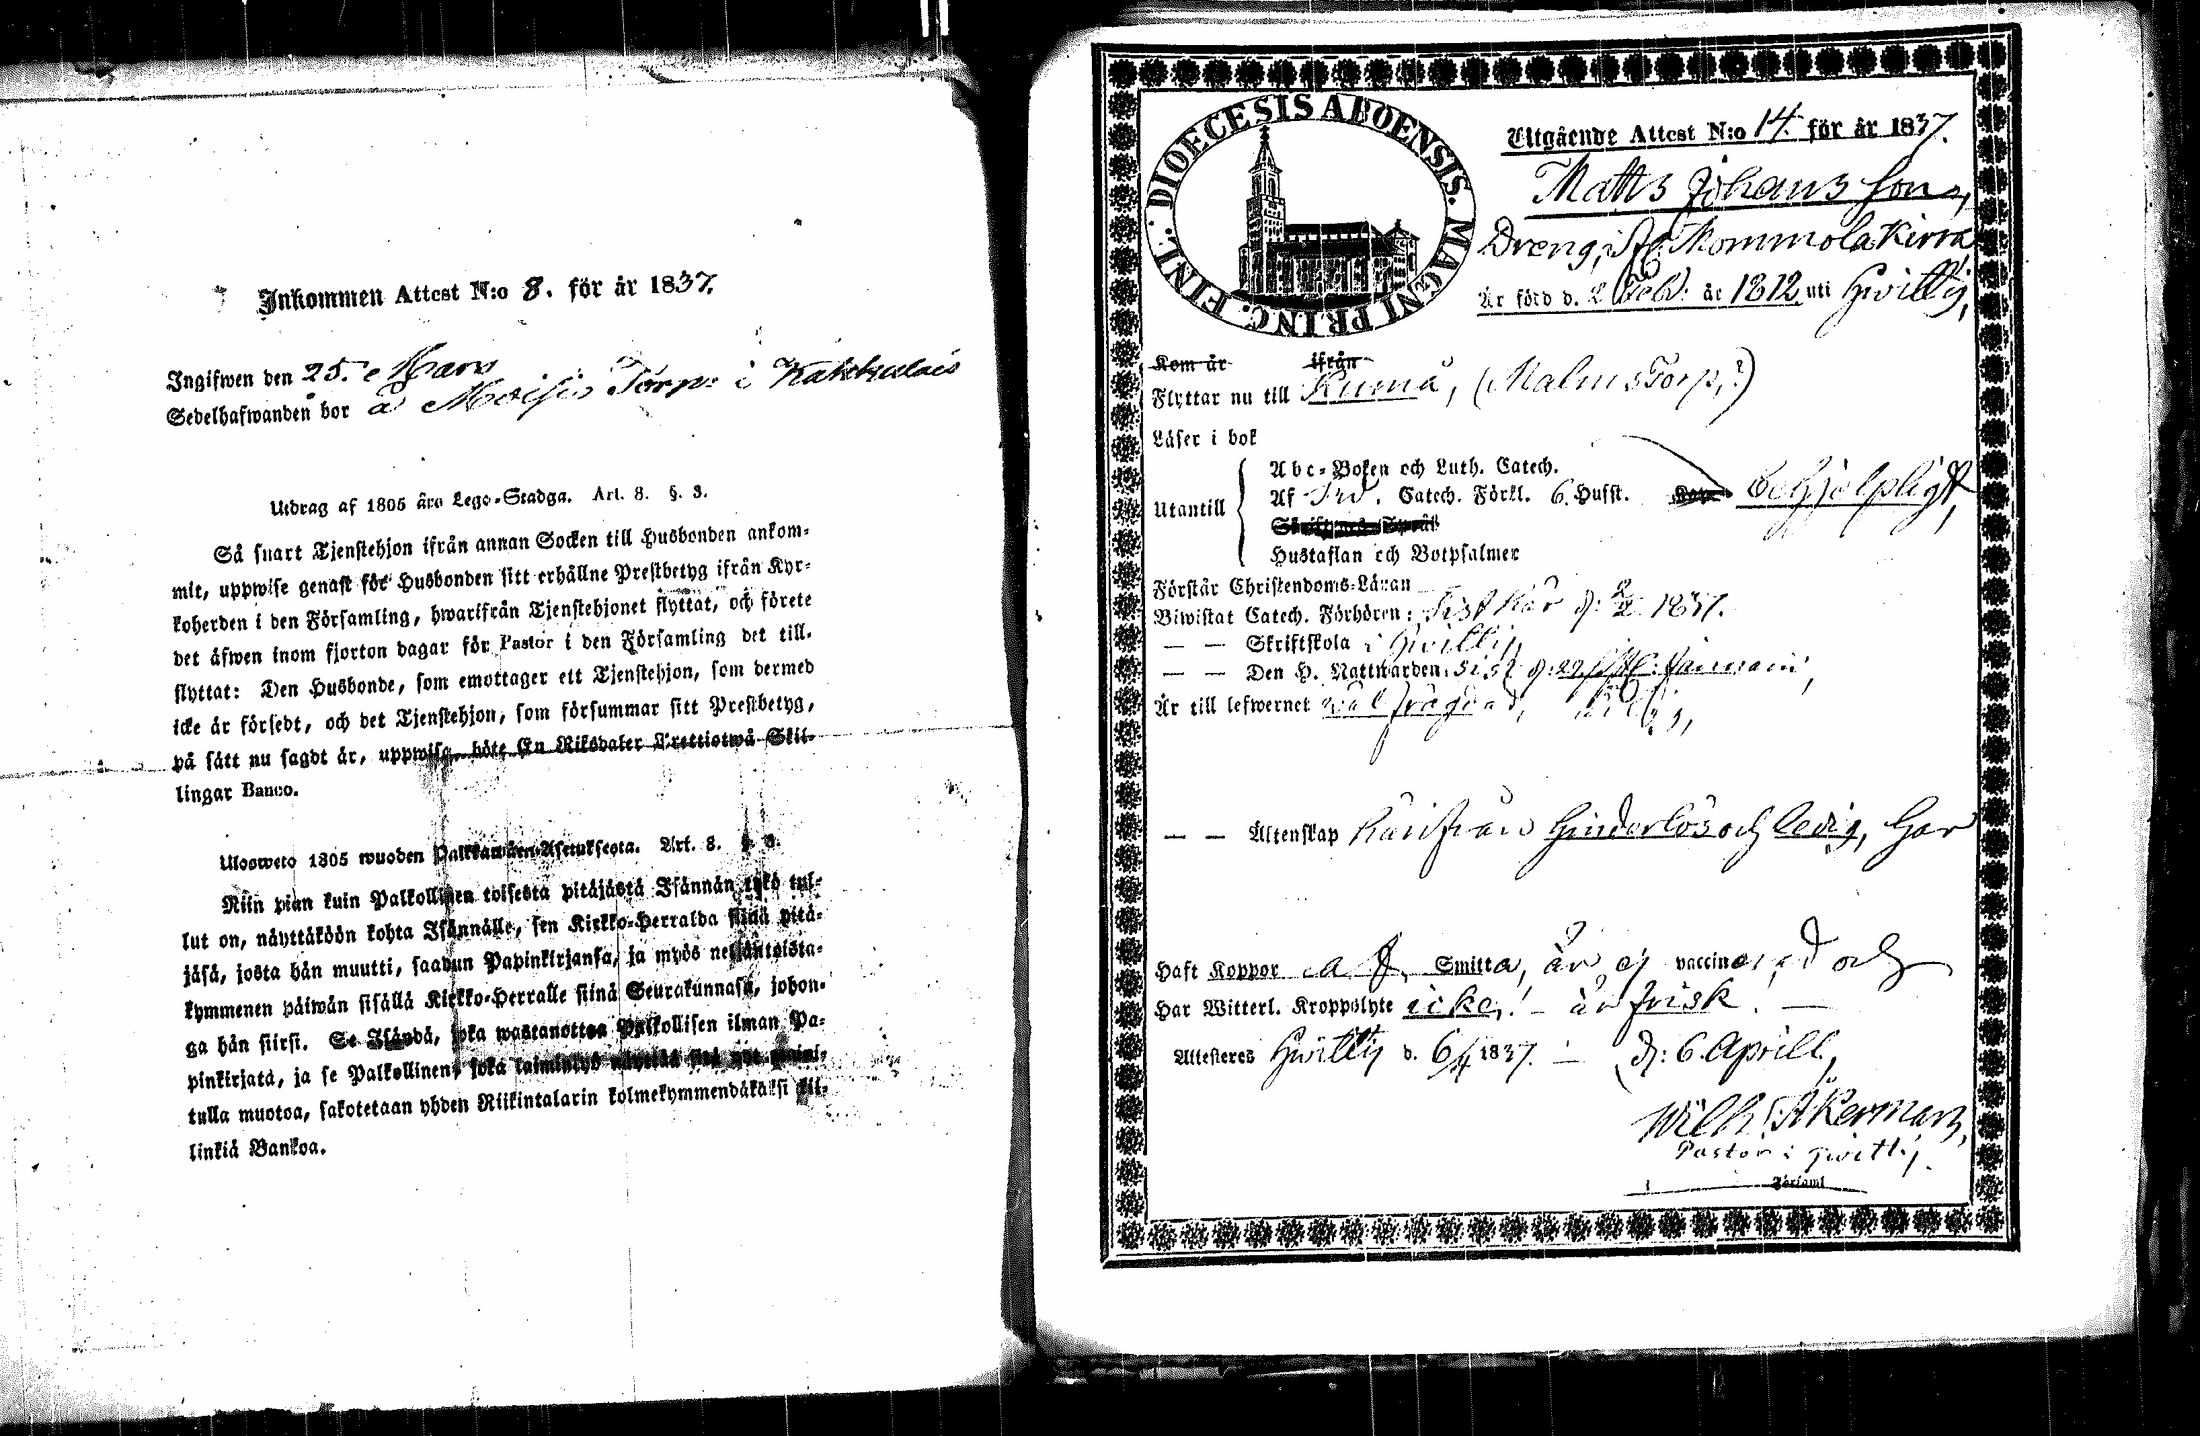 Inkommen Attest N:o 8. för år 1837.
Ingifwen den 25. Mars
Sedelhafwanden bor å Moisio Torp i Kakkulais
Utdrag af 1805 års Lego-Stadga. Art. 8. §. 3.
Så snart Tjenstehjon ifrån annan Socken till Husbonden ankom-
mit, uppwise genast för Husbonden sitt erhållne Prestbetyg ifrån Kyr-
koherden i den Församling, hwarifrån Tjenstehjonet flyttat, och förete
det äfwen inom fjorton dagar för Pastor i den Församling det till-
flyttat: Den Husbonde, som emottager ett Tjenstehjon, som dermed
icke är försedt, och det Tjenstehjon, som försummar sitt Prestbetyg,
på sätt nu sagdt är, uppwisa, böte En Riksdaler Trettiotwå Skil-
lingar Banco.
Ulosweto 1805 wuoden Palkkawäen-Asetuksesta. Art. 8. §. 3.
Niin pian kuin Palkollinen toisesta pitäjästä Isännän tykö tul-
lut on, näyttäköön kohta Isännälle, sen Kirkko-Herralda siinä pitä-
jäsä, josta hän muutti, saadun Papinkirjansa, ja myös neljäntoista-
kymmenen päiwän sisällä Kirkko-Herralle siinä Seurakunnasa, johon-
ga hän siirsi. Se Isändä, joka wastanottaa Palkollisen ilman Pa-
pinkirjatä, ja se Palkollinen, joka laiminlyö näyttää sitä nyt maini-
tulla muotoa, sakotetaan yhden Riikintalarin kolmekymmendäkaksi kil-
linkiä Bankoa.
DIOECESIS ABOENSIS. MAGNI PRINC. FINL.
Utgående Attest N:o 14. för år 1837.
Matts Johansson,
Dreng, Mommola Kirra
Är född d. 2 Feb: år 1812 uti Hwittis,
Kom år ifrån
Flyttar nu till Kumå, (Malms Torp,?)
Läser i bok
Utantill
Abc-Boken och Luth. Catech.
Af Catech. Förkl. 6. Husst. behjelpligt,
Hustaflan och Botpsalmer
Förstår Christendoms-Läran
Biwistat Catech. Förhören: sist här d: 1837.
— — Skriftskola i Hwittis,
— — Den H. Nattwarden, sist d: 29
Är till lefwernet wäl frägdad,
— — Äktenskap härifrån hinderlös och ledig, har
Haft Koppor af Smitta, är ej vaccinerad och
Har Witterl. Kroppslyte icke! – är frisk. —
Attesteres Hwittis d. 6/4 1837. — d: 6. Aprill,
Wilh: Åkerman,
Pastor i Hwittis.
Församl